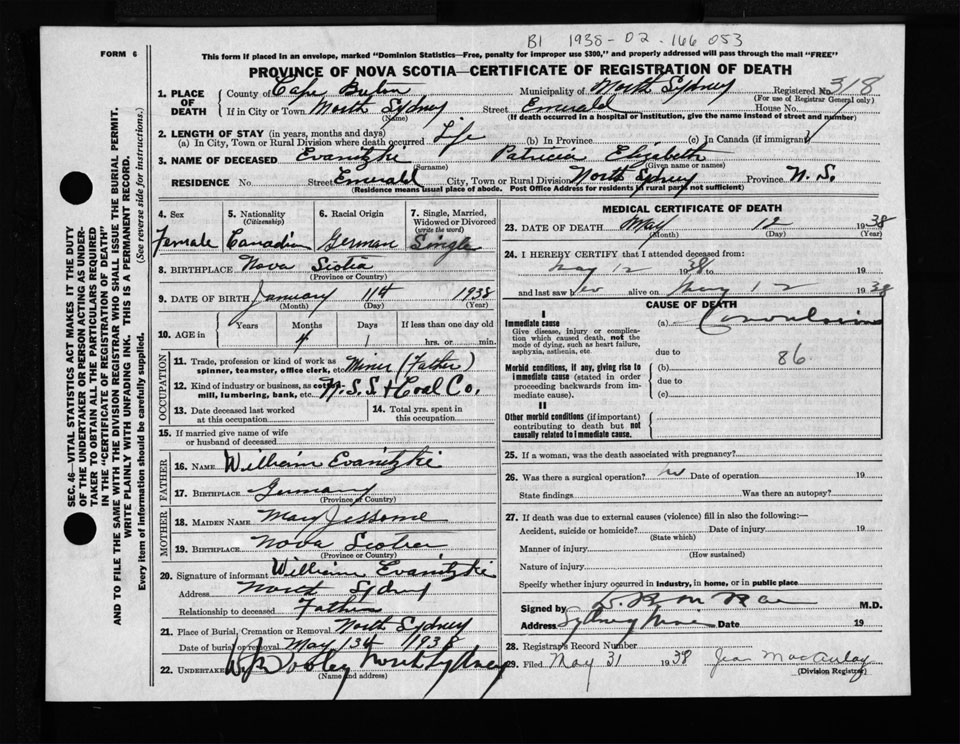 B1 1938-02-166 053
FORM 6
This form if placed in an envelope, marked "Dominion Statistics—Free, penalty for improper use $300," and properly addressed will pass through the mail "FREE"
PROVINCE OF NOVA SCOTIA—CERTIFICATE OF REGISTRATION OF DEATH
SEC. 46—VITAL STATISTICS ACT MAKES IT THE DUTY
OF THE UNDERTAKER OR PERSON ACTING AS UNDER-
TAKER TO OBTAIN ALL THE PARTICULARS REQUIRED
IN THE "CERTIFICATE OF REGISTRATION OF DEATH"
AND TO FILE THE SAME WITH THE DIVISION REGISTRAR WHO SHALL ISSUE THE BURIAL PERMIT.
WRITE PLAINLY WITH UNFADING INK. THIS IS A PERMANENT RECORD.
Every item of information should be carefully supplied. (See reverse side for instructions.)
1. PLACE OF DEATH County of Cape Breton Municipality of North Sydney Registered No. 318
(For use of Registrar General only)
If in City or Town North Sydney Street Emerald House No.
(Name) (If death occurred in a hospital or institution, give the name instead of street and number)
2. LENGTH OF STAY (in years, months and days)
(a) In City, Town or Rural Division where death occurred Life (b) In Province (c) In Canada (if immigrant)
3. NAME OF DECEASED Evanitzke Patricia Elizabeth
(Surname) (Given name or names)
RESIDENCE No. Street Emerald City, Town or Rural Division North Sydney Province N. S.
(Residence means usual place of abode. Post Office Address for residents in rural parts not sufficient)
4. Sex 5. Nationality (Citizenship) 6. Racial Origin 7. Single, Married, Widowed or Divorced (write the word)
Female Canadian German Single
8. BIRTHPLACE Nova Scotia
(Province or Country)
9. DATE OF BIRTH January 11th 1938
(Month) (Day) (Year)
10. AGE in Years Months Days If less than one day old
4 1 hrs. or min.
OCCUPATION
11. Trade, profession or kind of work as spinner, teamster, office clerk, etc. Miner (Father)
12. Kind of industry or business, as cotton mill, lumbering, bank, etc. N. S. S. & Coal Co.
13. Date deceased last worked at this occupation 14. Total yrs. spent in this occupation
15. If married give name of wife or husband of deceased
FATHER
16. NAME William Evanitzke
17. BIRTHPLACE Germany
(Province or Country)
MOTHER
18. MAIDEN NAME Mary Jessome
19. BIRTHPLACE Nova Scotia
(Province or Country)
20. Signature of informant William Evanitzke
Address North Sydney
Relationship to deceased Father
21. Place of Burial, Cremation or Removal North Sydney
Date of burial or removal May 13th 1938
22. UNDERTAKER Dooley North Sydney
(Name and address)
MEDICAL CERTIFICATE OF DEATH
23. DATE OF DEATH May 12 1938
(Month) (Day) (Year)
24. I HEREBY CERTIFY that I attended deceased from:
May 12 1938 to 19
and last saw her alive on May 12 1938
CAUSE OF DEATH
I
Immediate cause (a) Convulsions
Give disease, injury or complication which caused death, not the mode of dying, such as heart failure, asphyxia, asthenia, etc.
due to
86
Morbid conditions, if any, giving rise to immediate cause (stated in order proceeding backwards from immediate cause). (b)
due to
(c)
II
Other morbid conditions (if important) contributing to death but not causally related to immediate cause.
25. If a woman, was the death associated with pregnancy?
26. Was there a surgical operation? no Date of operation 19
State findings Was there an autopsy?
27. If death was due to external causes (violence) fill in also the following:—
Accident, suicide or homicide? Date of injury 19
(State which)
Manner of injury
(How sustained)
Nature of injury
Specify whether injury occurred in industry, in home, or in public place
Signed by M.D.
Address Sydney Mines Date 19
28. Registrar's Record Number
29. Filed May 31 1938 Jean MacAulay
(Division Registrar)